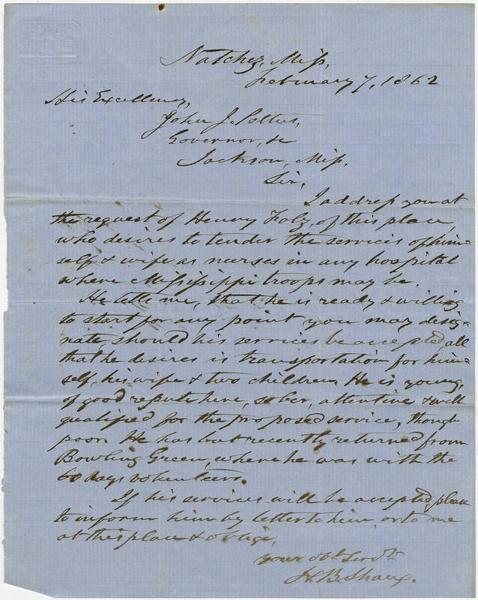 Natchez, Miss,
February 7, 1862
His Excellency,
John J. Pettus,
Governor, &c
Jackson, Miss,
Sir,
I address you at
the request of Henry Folz of this place
who desires to tender the services of him-
self & wife as nurses in any hospital
where Mississippi troops may be.
He tells me, that he is ready & willing
to start for any point you may desig-
nate, should his services be accepted, all
that he desires is transportation for him-
self, his wife & two children. He is young,
of good repute here, sober, attentive & well
qualified for the proposed service, though
poor. He has but recently returned from
Bowling Green, where he was with the
60 days volunteers.
If his services will be accepted, please
to inform him by letter to him, or to me
at this place & oblige,
your obt Servt
H. B. Shaw.